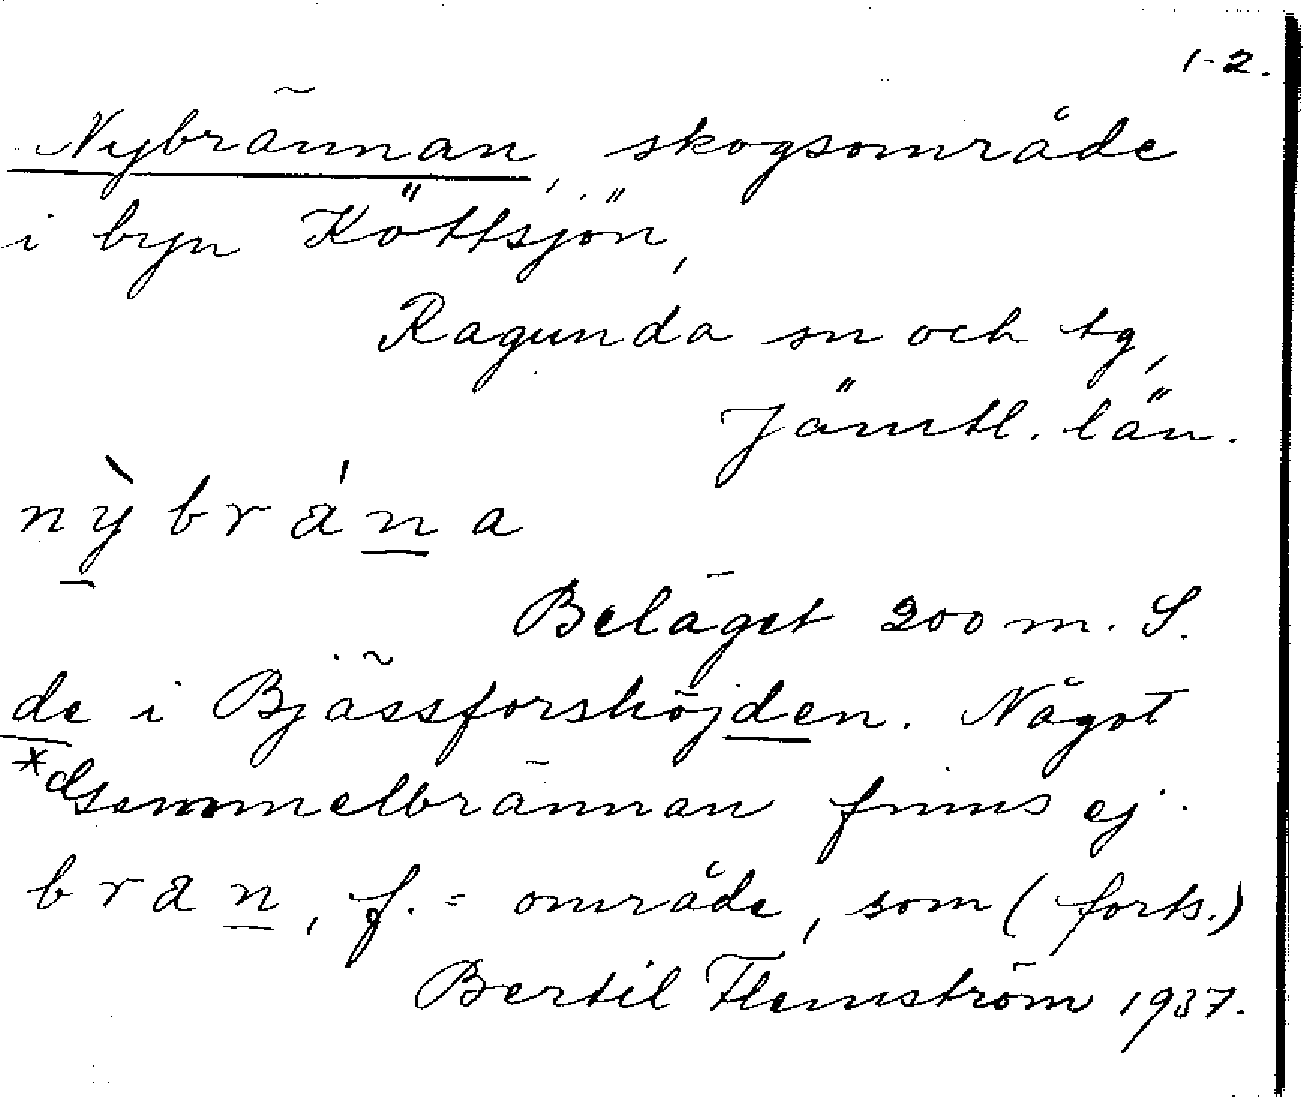 1-2.
Nybrännan, skogsområde
i byn Köttsjön,
Ragunda sn och tg,
Jämtl. län.
nỳbrána
Beläget 200 m. S.
de i Bjässforshöjden. Något
*Gammelbrännan finns ej.
bran, f. = område, som (forts.)
Bertil Flemström 1937.